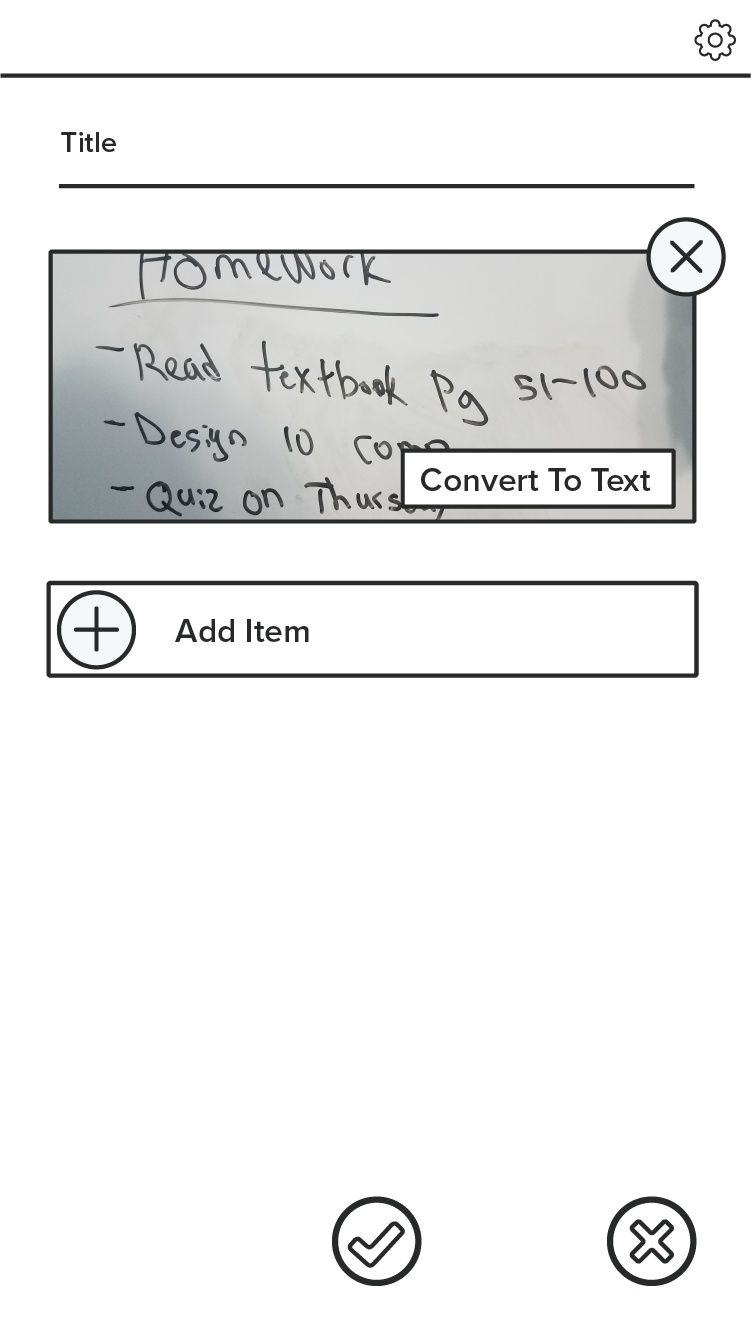 Title
Homework
- Read textbook Pg 51-100
- Design 10
- Quiz on Thursday
Convert To Text
Add Item